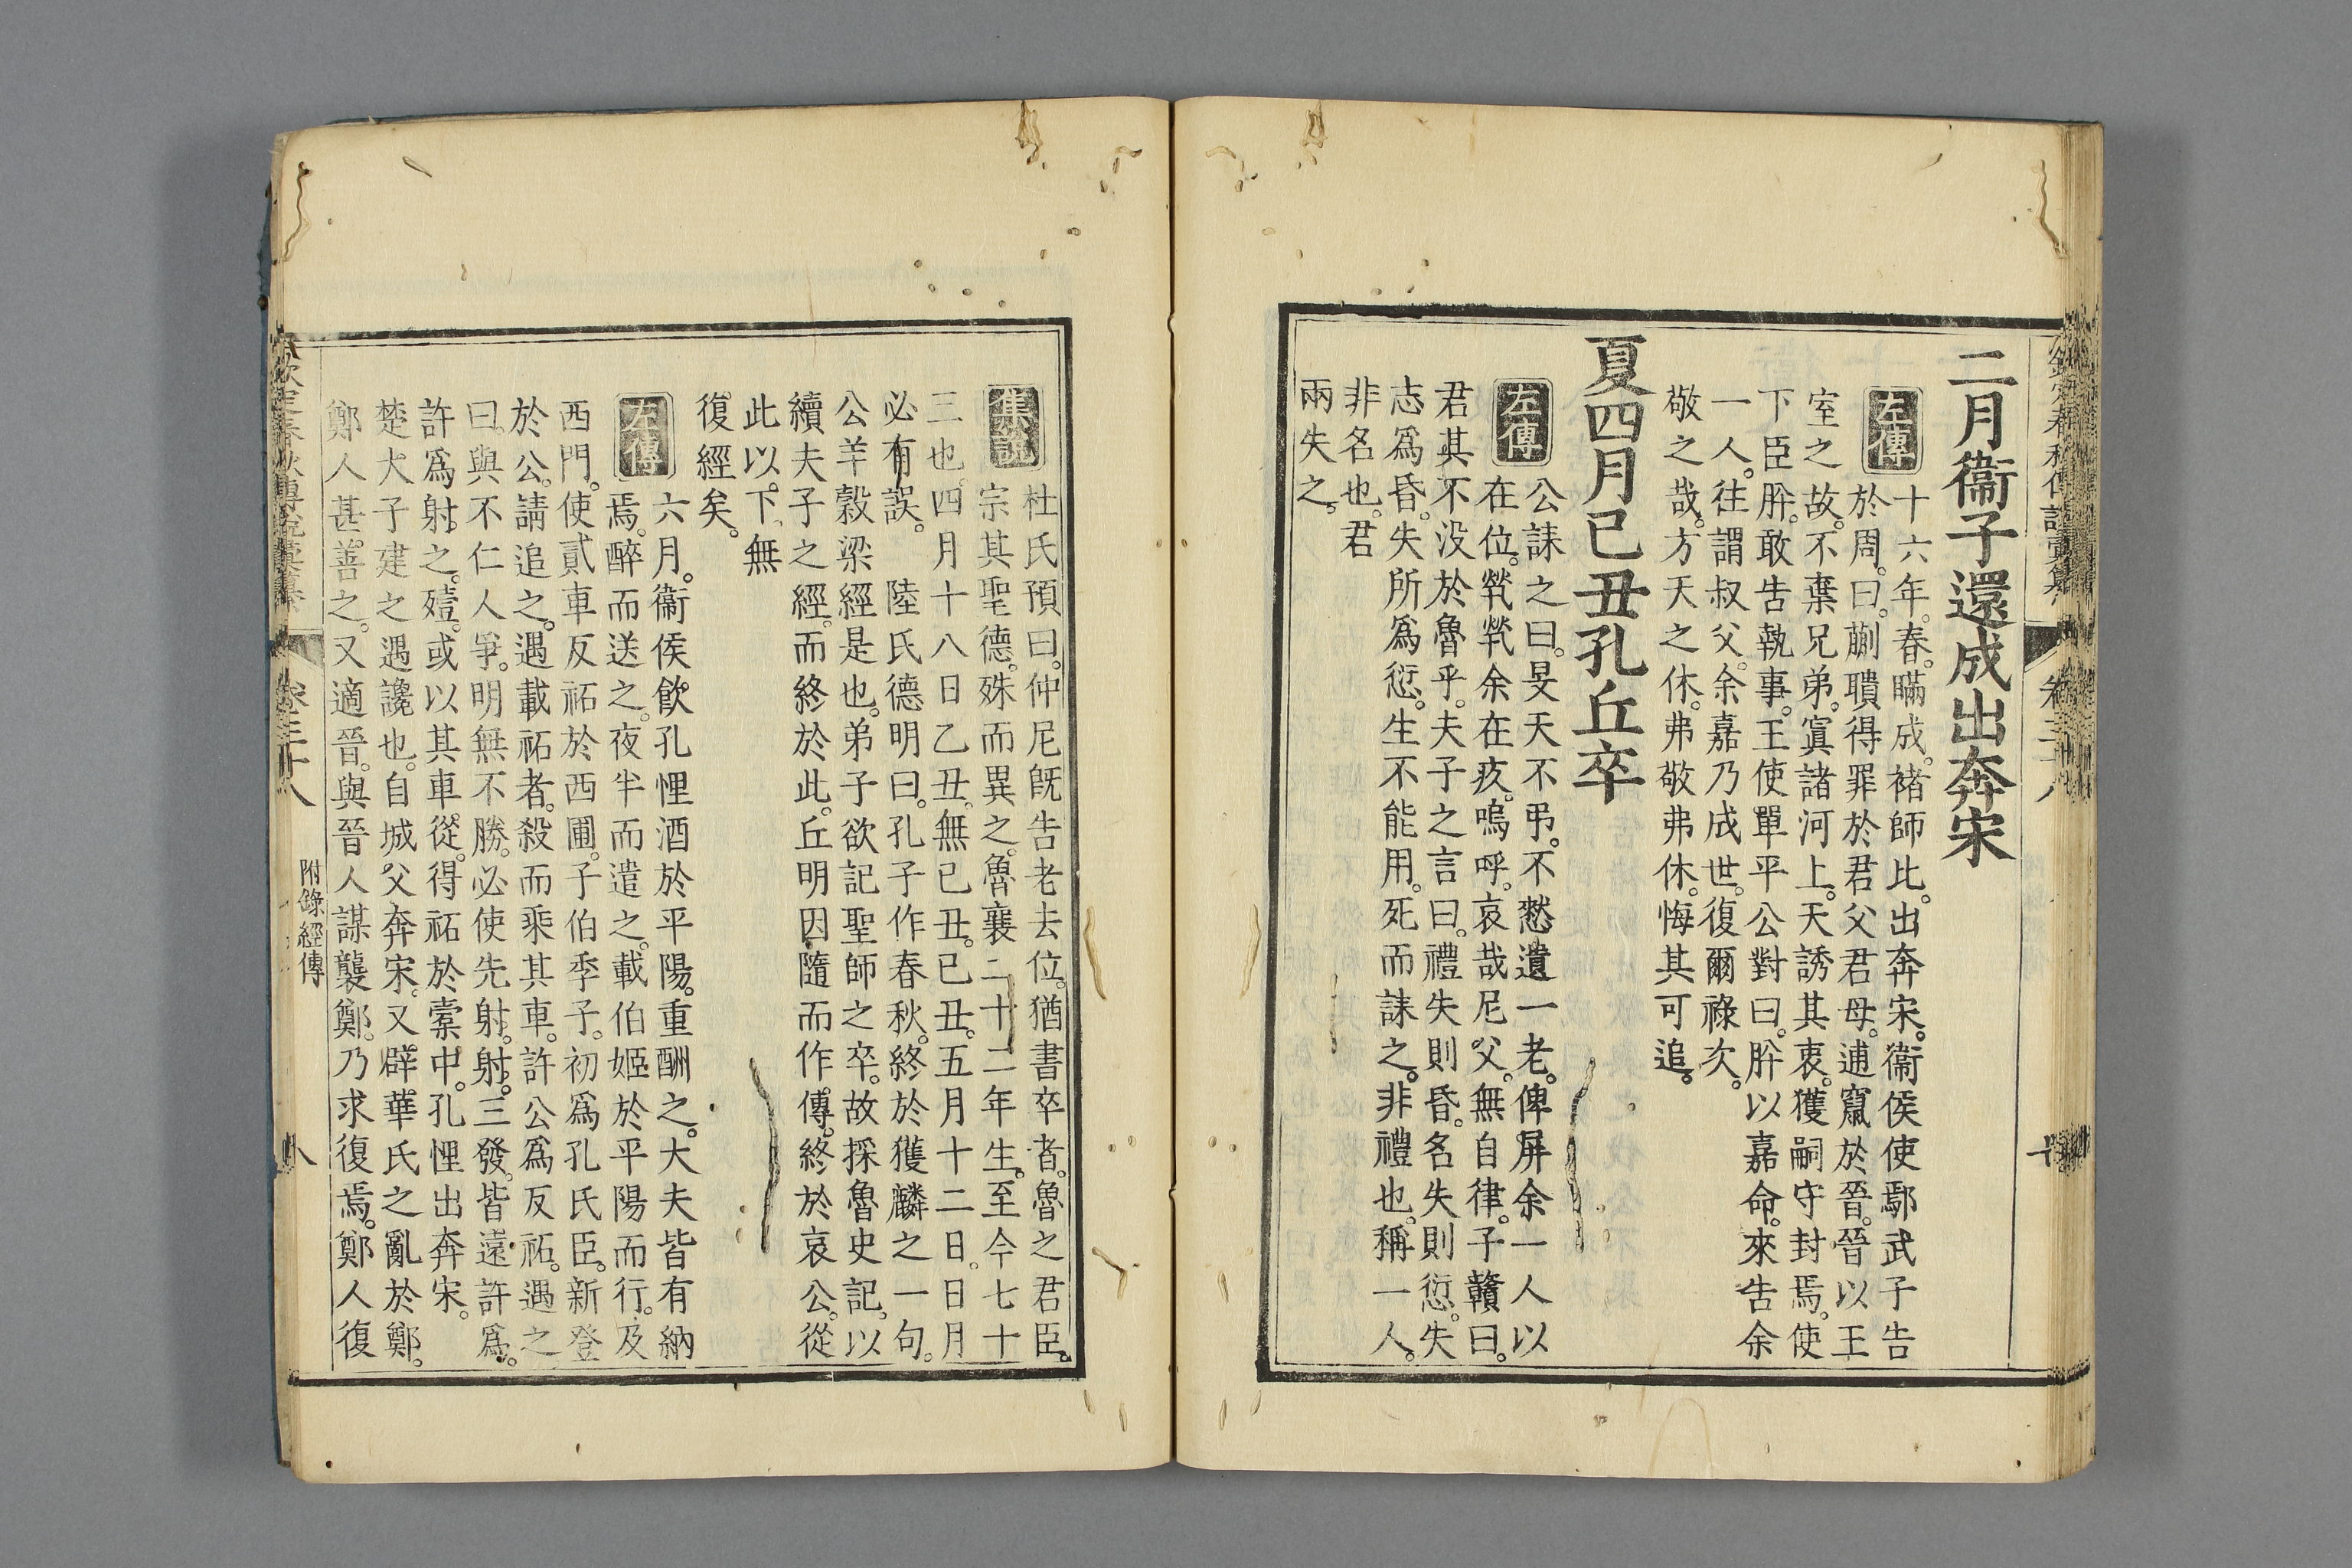 二月衞子還成出奔宋
左傳 十六年。春。瞞成。褚師比。出奔宋。衞侯使鄢武子告
於周。曰。蒯聵得罪於君父君母。逋竄於晉。晉以王
室之故。不棄兄弟。寘諸河上。天誘其衷。獲嗣守封焉。使
下臣肸。敢告執事。王使單平公對曰。肸以嘉命。來告余
一人。往謂叔父。余嘉乃成世。復爾祿次。
敬之哉。方天之休。弗敬弗休。悔其可追。
夏四月已丑孔丘卒
左傳 公誄之曰。旻天不弔。不憖遺一老。俾屏余一人以
在位。煢煢余在疚。嗚呼。哀哉尼父。無自律。子贛曰。
君其不没於魯乎。夫子之言曰。禮失則昏。名失則愆。失
志爲昏。失所爲愆。生不能用。死而誄之。非禮也。稱一人。
非名也。君
兩失之。
集說 杜氏預曰。仲尼旣告老去位。猶書卒者。魯之君臣。
宗其聖德。殊而異之。魯襄二十二年生。至今七十
三也。四月十八日乙丑。無已丑。已丑。五月十二日。日月
必有誤。 陸氏德明曰。孔子作春秋。終於獲麟之一句。
公羊榖梁經是也。弟子欲記聖師之卒。故採魯史記。以
續夫子之經。而終於此。丘明因隨而作傳。終於哀公。從
此以下。無
復經矣。
左傳 六月。衞侯。飲孔悝酒於平陽。重酬之。大夫皆有納
焉。醉而送之。夜半而遣之。載伯姬於平陽而行。及
西門。使貳車反祏於西圃。子伯季子。初爲孔氏臣。新登
於公。請追之。遇載祏者。殺而乘其車。許公爲反祏。遇之
曰。與不仁人爭。明無不勝。必使先射。射。三發。皆遠許爲。
許爲射。之。殪。或以其車。從。得祏於橐中。孔悝出奔宋。
楚大子建之遇讒也。自城父奔宋。又辟華氏之亂於鄭。
鄭人甚。善之。又適晉。與晉人謀襲鄭。乃求復焉。鄭人復
卷三十八
附錄經傳
八